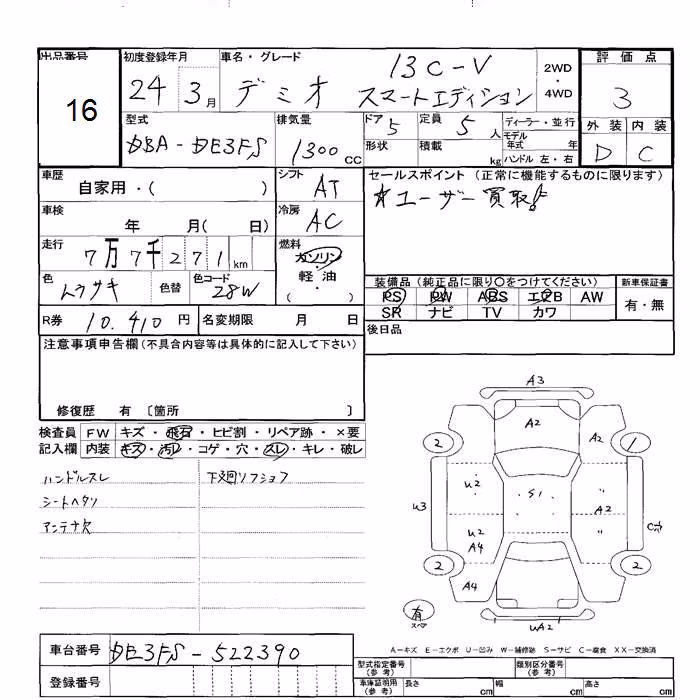 出品番号
16
初度登録年月
24 3月
車名・グレード
デミオ 13C-V
スマートエディション
2WD
4WD
評価点
3
外装 内装
D C
型式
DBA-DE3FS
排気量
1300cc
ドア 5
形状
定員 5人
積載 kg
ディーラー・並行
モデル年式 年
ハンドル 左・右
車歴
自家用・( )
シフト
AT
セールスポイント (正常に機能するものに限ります)
★ユーザー買取♪
車検
年 月( 日)
冷房
AC
走行
7万7千271km
燃料
ガソリン
軽・油
( ・ )
色
ムラサキ
色替
色コード
28W
装備品 (純正品に限り○をつけてください)
PS PW ABS エアB AW
SR ナビ TV カワ
新車保証書
有・無
R券 10.410円
名変期限 月 日
後日品
注意事項申告欄(不具合内容等は具体的に記入して下さい)
修復歴 有 〔箇所 〕
検査員 FW キズ・飛石・ヒビ割・リペア跡・×要
記入欄 内装 キズ・汚レ・コゲ・穴・スレ・キレ・破レ
ハンドルスレ
シートヘタリ
アンテナ欠
下廻リフショフ
A3
A2
2
A2
1
U2
S1
〃
U3
A2
U2
A4
〃
2
2
A4
有
スペア
UA2
A-キズ E-エクボ U-凹み W-補修跡 S-サビ C-腐食 XX-交換済
車台番号
DE3FS-522390
登録番号
型式指定番号
(参考)
類別区分番号
(参考)
車庫証明用
(参考)
長さ cm
幅 cm
高さ cm